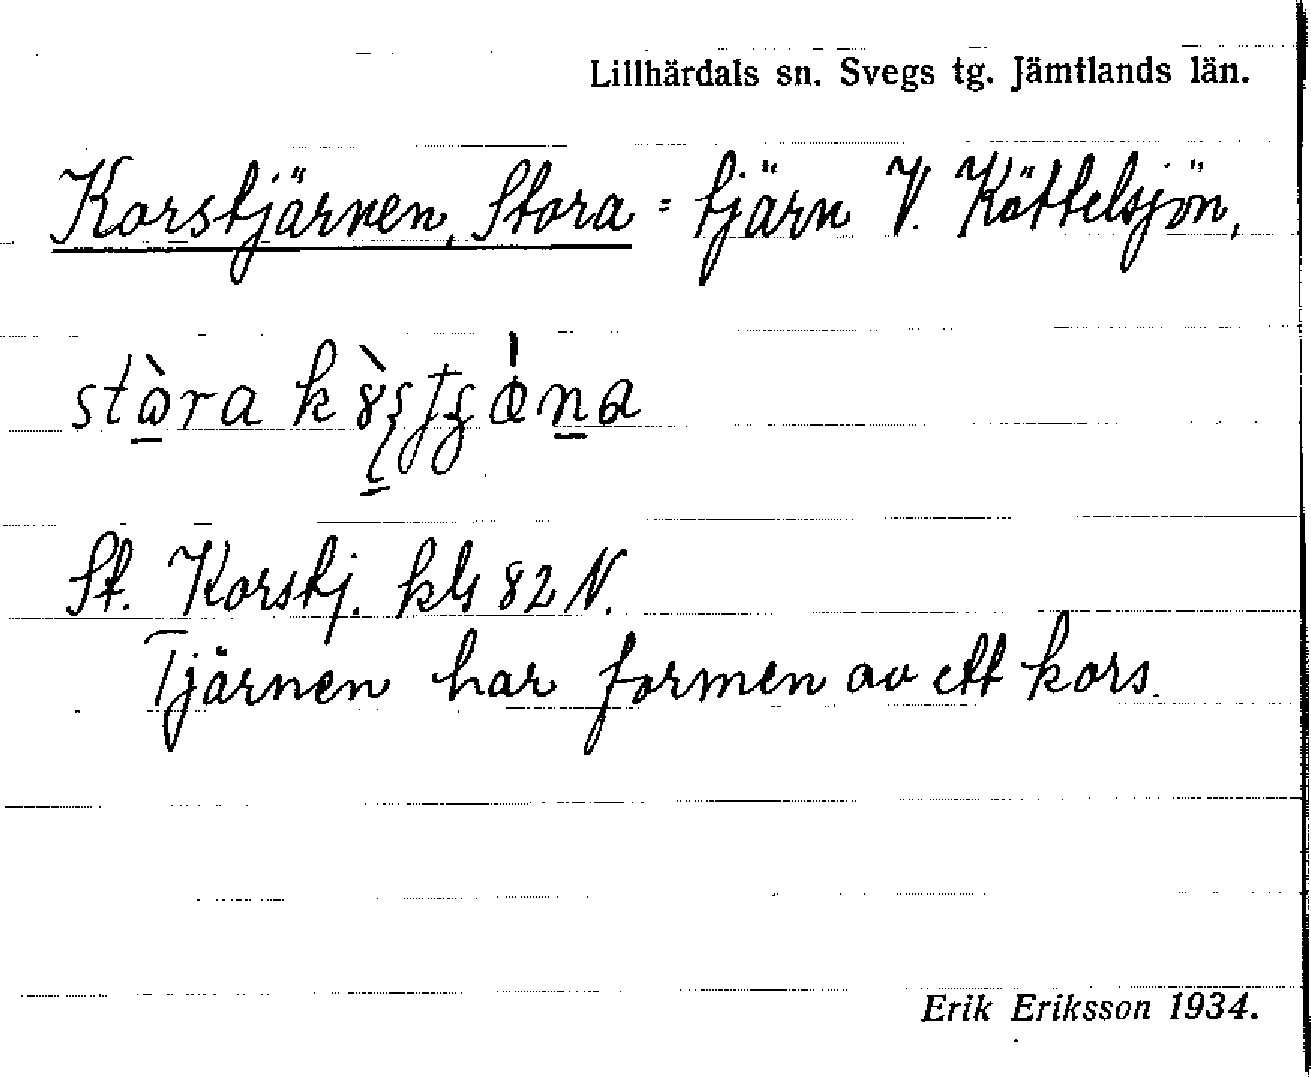 Lillhärdals sn. Svegs tg. Jämtlands län.
Korstjärnen, Stora = tjärn V. Köttelsjön,
St. Korstj. kls 82 N.
Tjärnen har formen av ett kors.
Erik Eriksson 1934.